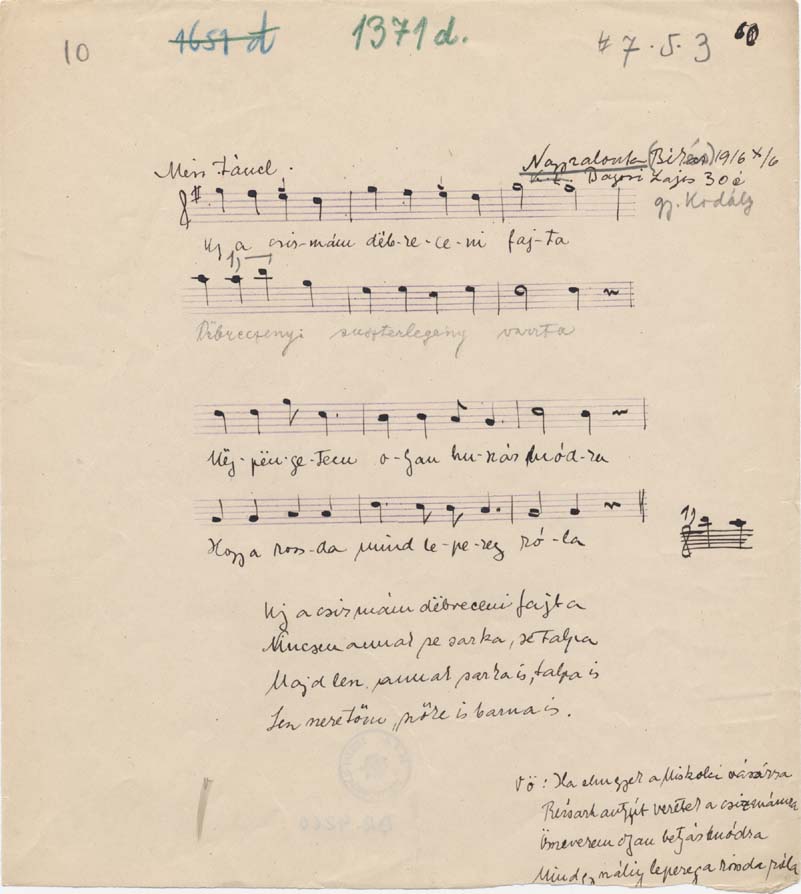 10
1651 d
1371 d.
# 7 . 5 . 3
Nagyszalonta (Bihar) 1916 X/6
Mérs. tánc.
Lajos 30 é
gy. Kodály
Uj a csiz-mám dëb-re-ce-ni faj-ta
1)
Dëbreczenyi suszterlegény varrta
Mëg-pën-ge-tem o-lyan hu-szár mód-ra
Hogy a rozs-da mind le-pe-reg ró-la
1)
Uj a csizmám dëbreceni fajta
Nincsen annak se sarka, se talpa
Majd lesz annak sarka is, talpa is
Lesz szeretőm, szőke is barna is.
Vö: Ha elmegyek a Miskolci vásárra
veretek a csizmámra
Összeverem olyan betyár módra
Mind lepereg a rozsda róla